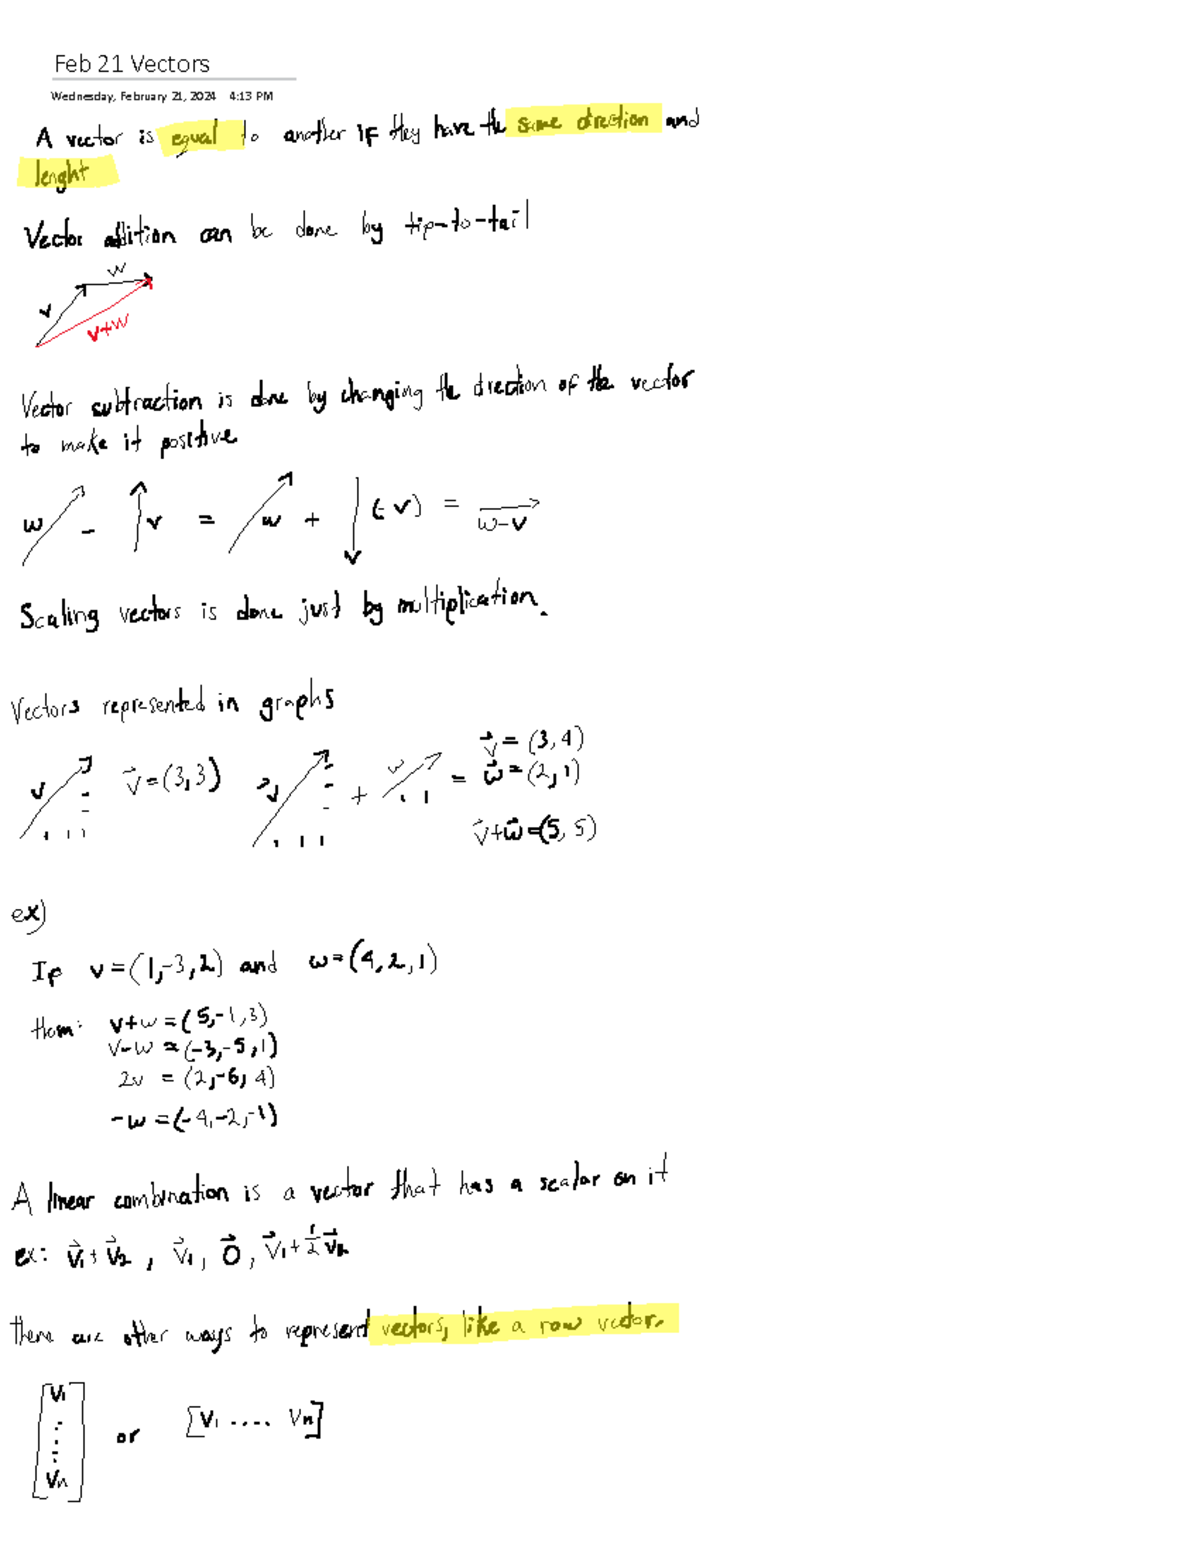 Feb 21 Vectors
Wednesday, February 21, 2024 4:13 PM
A vector is equal to another if they have the same direction and
lenght
Vector addition can be done by tip-to-tail
w
v
v+w
Vector subtraction is done by changing the direction of the vector
to make it positive
w - v = w + (-v) = w-v
Scaling vectors is done just by multiplication.
Vectors represented in graphs
v⃗ = (3, 4)
v v⃗ = (3,3) v + w = w⃗ = (2, 1)
v⃗+w⃗ = (5, 5)
ex)
If v = (1,-3,2) and w = (4,2,1)
them: v+w = (5,-1,3)
v-w = (-3,-5,1)
2v = (2,-6,4)
-w = (-4,-2,-1)
A linear combination is a vector that has a scalar on it
ex: v⃗₁ + v⃗₂, v⃗₁, 0⃗, v⃗₁ + 1/2 v⃗₂
there are other ways to represent vectors, like a row vector.
[v₁ ⋮ vₙ] or [v₁ .... vₙ]